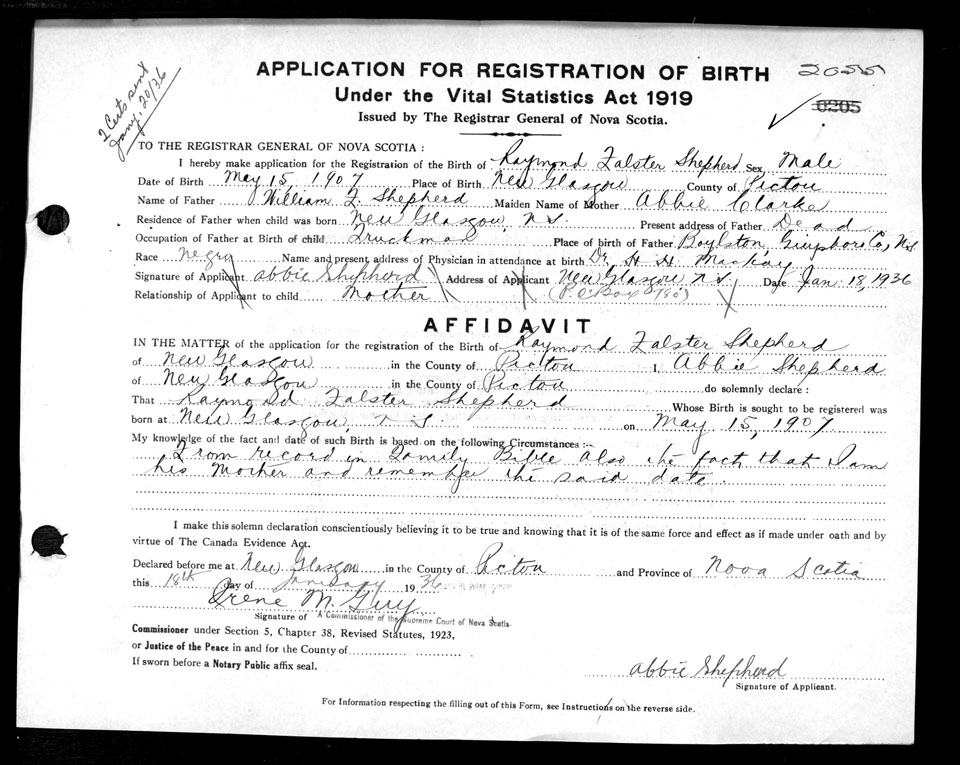 2 Certs sent
Jany. 20/36
APPLICATION FOR REGISTRATION OF BIRTH
2055
Under the Vital Statistics Act 1919
0205
Issued by The Registrar General of Nova Scotia.
TO THE REGISTRAR GENERAL OF NOVA SCOTIA :
I hereby make application for the Registration of the Birth of Raymond Falster Shepherd Sex Male
Date of Birth May 15, 1907 Place of Birth New Glasgow County of Pictou
Name of Father William F. Shepherd Maiden Name of Mother Abbie Clarke
Residence of Father when child was born New Glasgow, N.S. Present address of Father Dead
Occupation of Father at Birth of child Truckman Place of birth of Father Boylston, Guysboro Co, N.S
Race Negro Name and present address of Physician in attendance at birth Dr. H. H. Mackay
Signature of Applicant Abbie Shepherd Address of Applicant New Glasgow N.S. Date Jan. 18, 1936
Relationship of Applicant to child Mother (P.O. Box 790)
AFFIDAVIT
IN THE MATTER of the application for the registration of the Birth of Raymond Falster Shepherd
of New Glasgow in the County of Pictou I, Abbie Shepherd
of New Glasgow in the County of Pictou do solemnly declare :
That Raymond Falster Shepherd Whose Birth is sought to be registered was
born at New Glasgow, N.S. on May 15, 1907
My knowledge of the fact and date of such Birth is based on the following Circumstances :-
From record in Family Bible also the fact that I am
his Mother and remember the said date.
I make this solemn declaration conscientiously believing it to be true and knowing that it is of the same force and effect as if made under oath and by
virtue of The Canada Evidence Act.
Declared before me at New Glasgow in the County of Pictou and Province of Nova Scotia
this 18th day of January 1936
Irene M. Guy
Signature of A Commissioner of the Supreme Court of Nova Scotia.
Commissioner under Section 5, Chapter 38, Revised Statutes, 1923,
or Justice of the Peace in and for the County of
If sworn before a Notary Public affix seal.
Abbie Shepherd
Signature of Applicant.
For Information respecting the filling out of this Form, see Instructions on the reverse side.